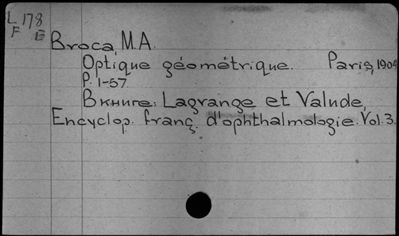 L 178
F E
Broca, M.A.
Optique géométrique. Paris, 1904
P. 1-57.
Вкниге: Lagrange et Valude,
Encyclop. franç. d'ophthalmologie. Vol. 3.